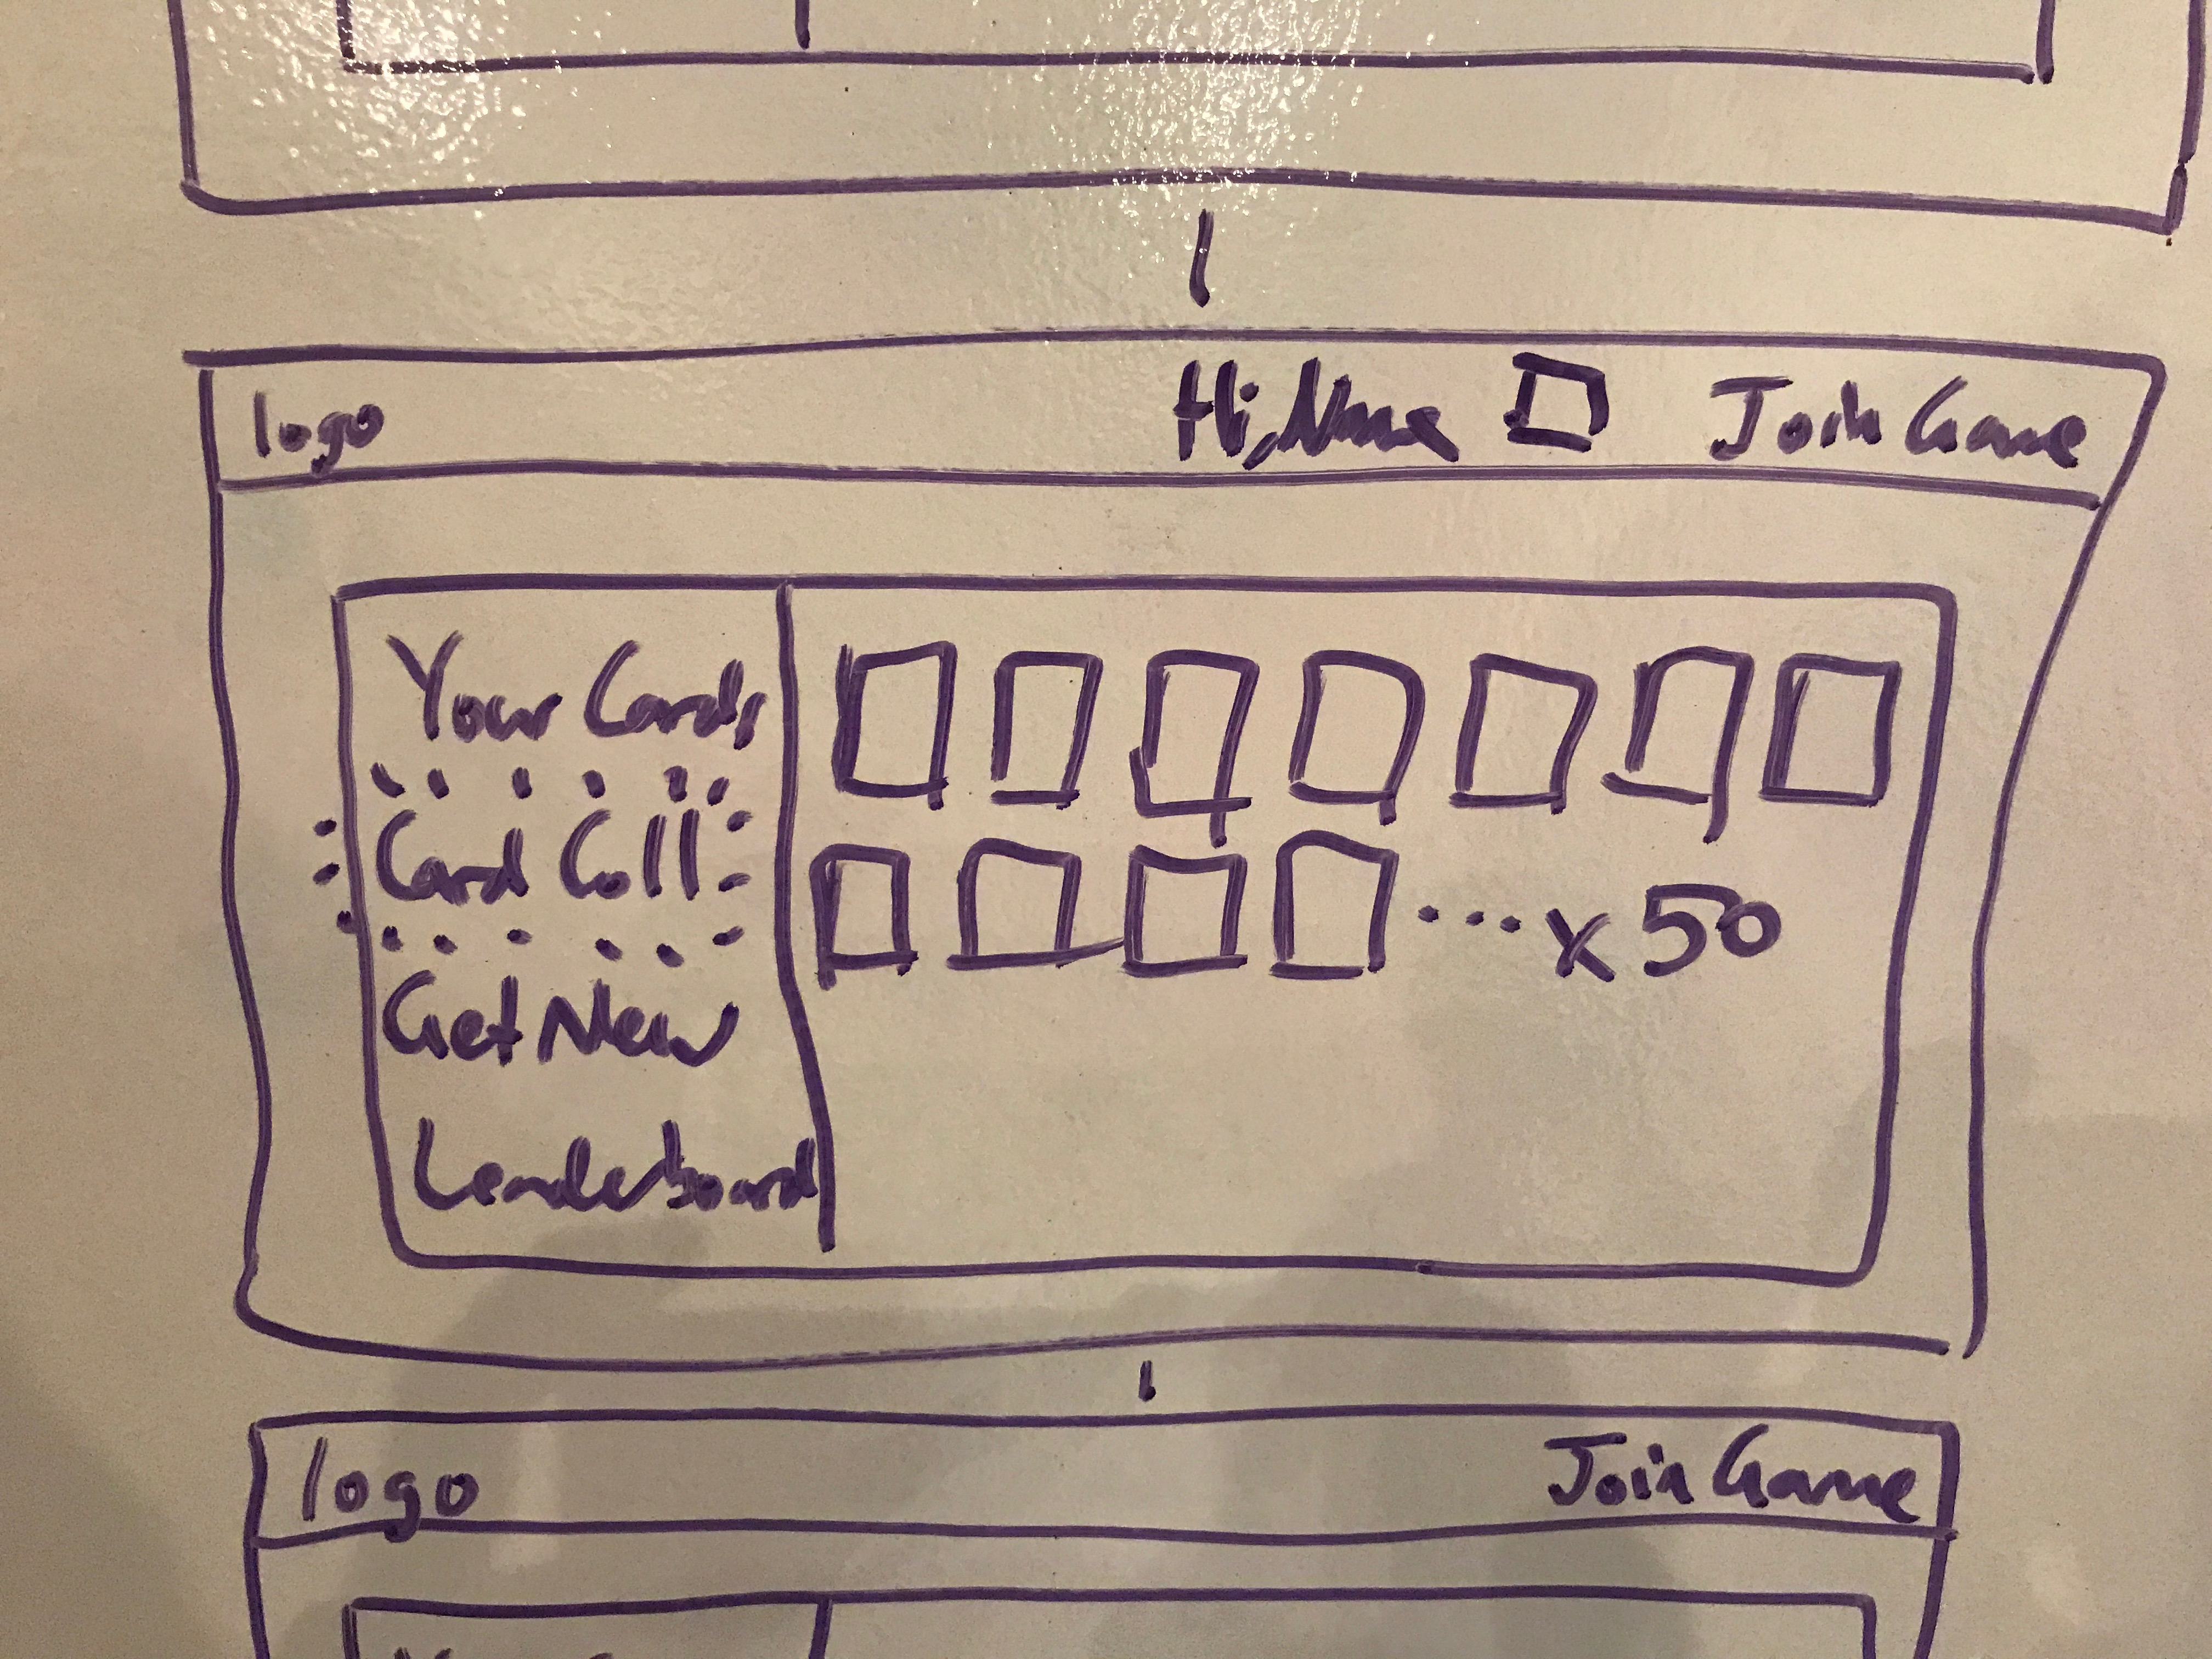 logo
Hi, Name
Join Game
Your Cards
Card Coll
Get New
Leaderboard
... x 50
logo
Join Game